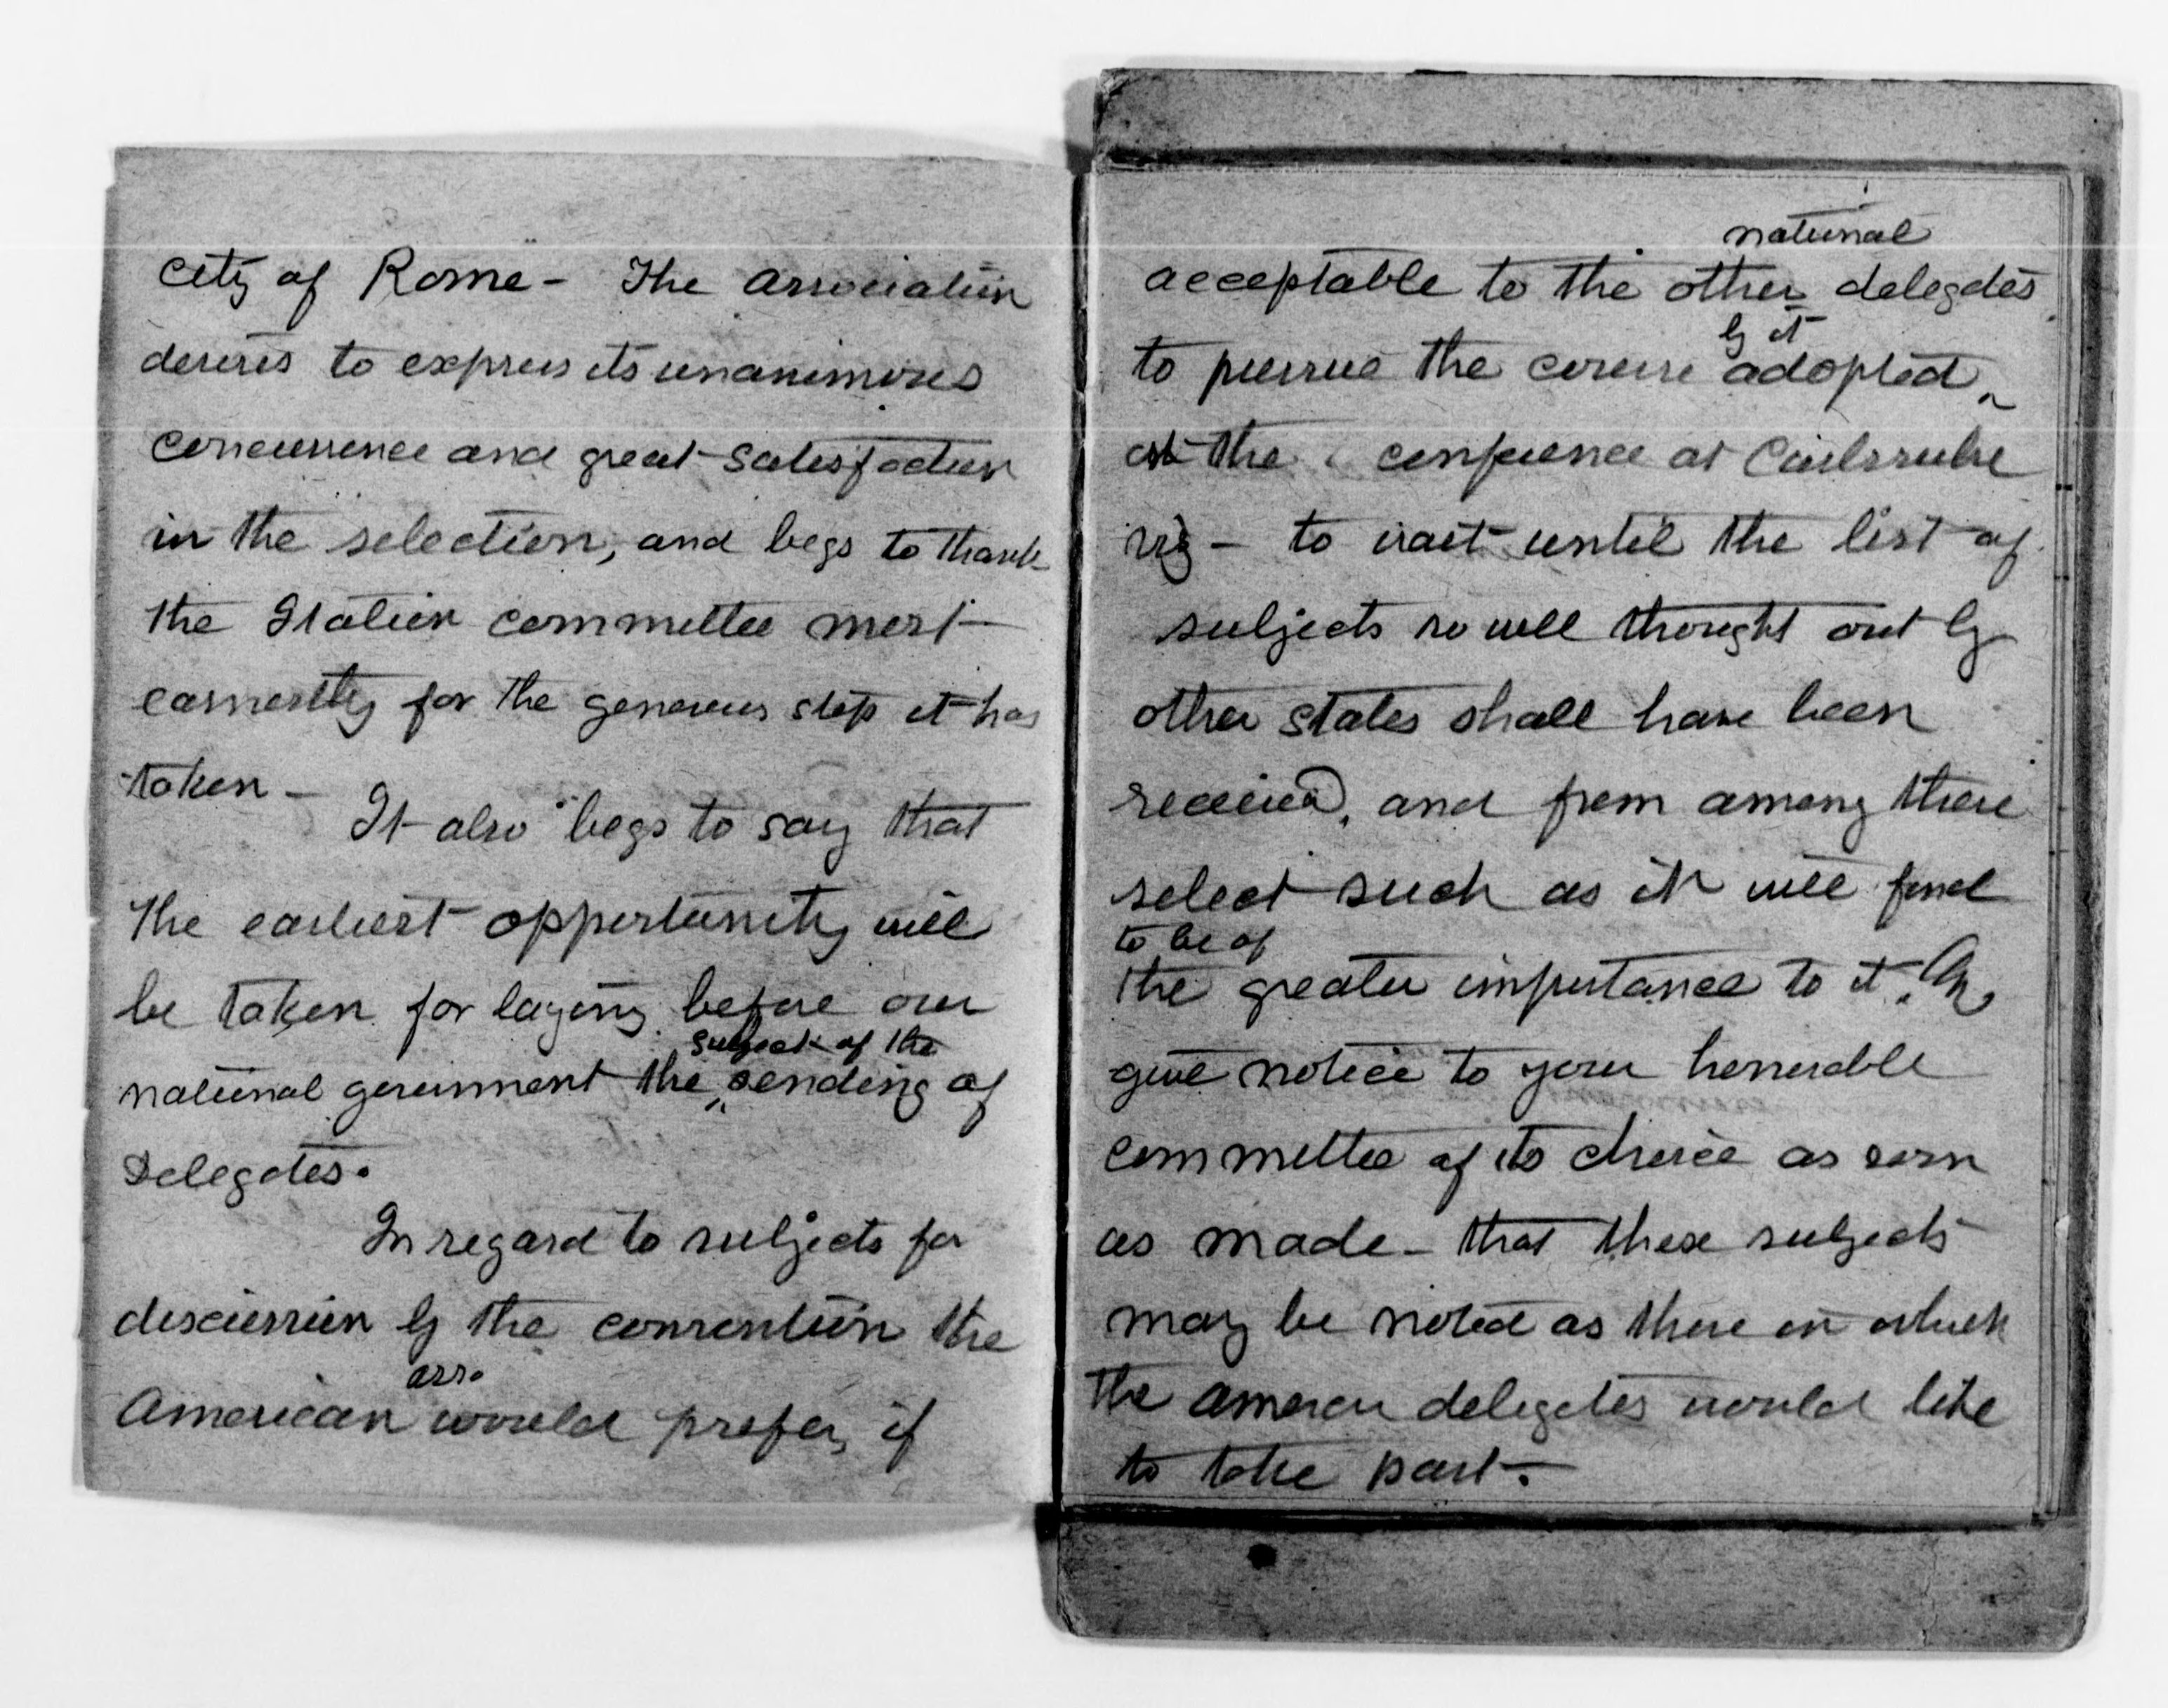 City of Rome - The association
desires to express its unanimous
concurrence and great satisfaction
in the selection, and begs to thank
the Italian committee most
earnestly for the generous step it has
taken -
It also begs to say that
the earliest opportunity will
be taken for laying before our
subject of the
national government the sending of
Delegates.
In regard to subjects for
discussion by the convention the
ass.
American would prefer, if
national
acceptable to the other delegates
by it
to pursue the course adopted
at the conference at Carlsruhe
viz - to wait until the list of
subjects so well thought out by
other states shall have been
received, and from among these
select such as it will find
to be of
the greater importance to it. &
give notice to your honorable
committee of its choice as soon
as made - that these subjects
may be noted as those in which
the American delegates would like
to take part.